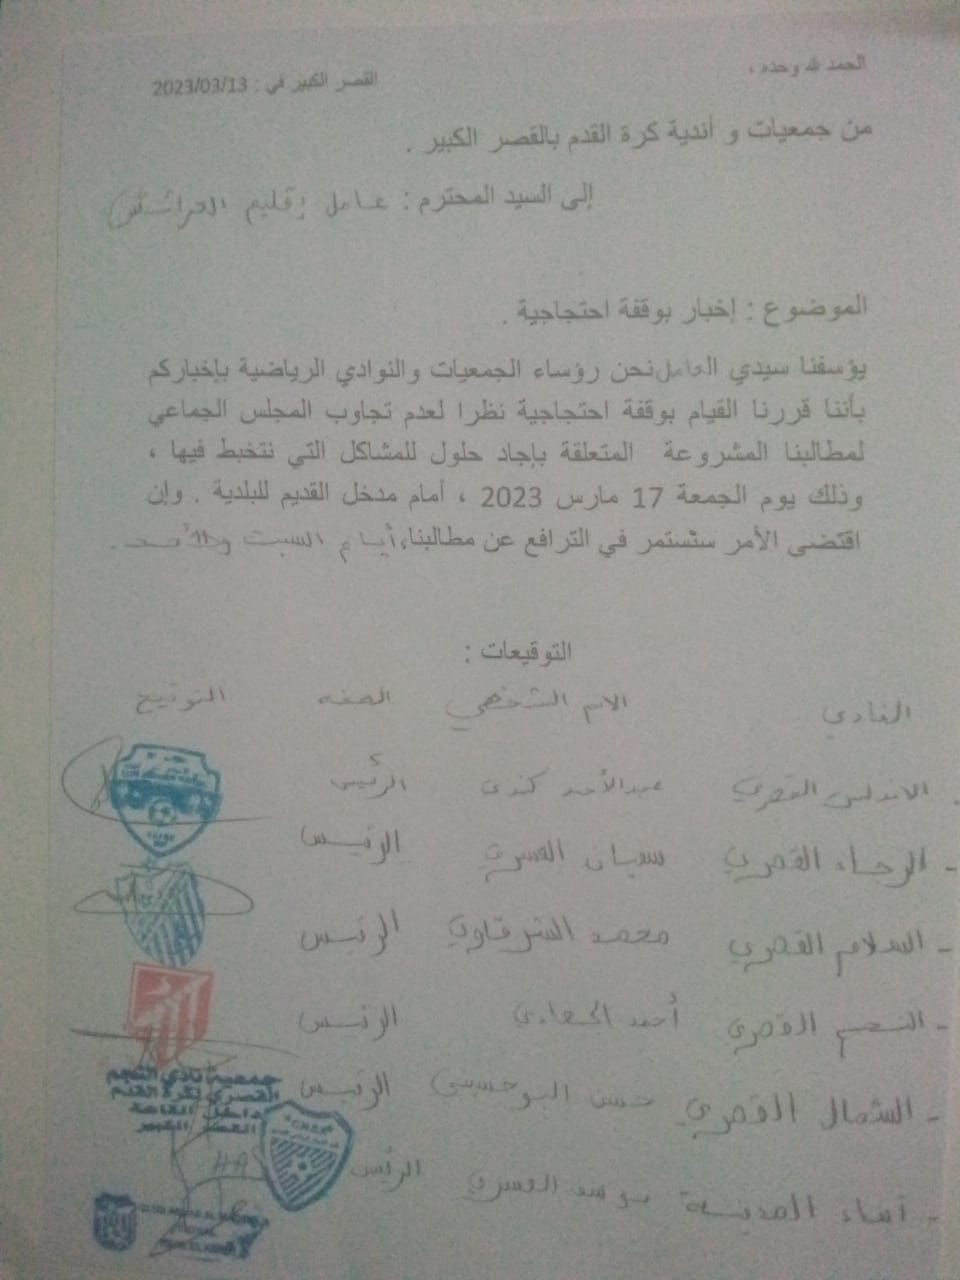 الحمد لله وحده ،
القصر الكبير في : 2023/03/13
من جمعيات و أندية كرة القدم بالقصر الكبير .
إلى السيد المحترم : عامل إقليم العرائش
الموضوع : إخبار بوقفة احتجاجية .
يؤسفنا سيدي العامل نحن رؤساء الجمعيات والنوادي الرياضية بإخباركم
بأننا قررنا القيام بوقفة احتجاجية نظرا لعدم تجاوب المجلس الجماعي
لمطالبنا المشروعة المتعلقة بإجاد حلول للمشاكل التي نتخبط فيها ،
وذلك يوم الجمعة 17 مارس 2023 ، أمام مدخل القديم للبلدية . وإن
اقتضى الأمر سنستمر في الترافع عن مطالبنا، أيام السبت والأحد .
التوقيعات :
النادي الاسم الشخصي الصفة التوقيع
الاندلس القصري عبدالأحد الرئيس
- الرجاء القصري الرئيس
- السلام القصري محمد الشرقاوي الرئيس
- النجم القصري أحمد الرئيس
- الشمال القصري حسن الرئيس
- المدينة يوسف الرئيس
جمعية نادي النجم
القصري لكرة القدم
داخل القاعة
القصر الكبير